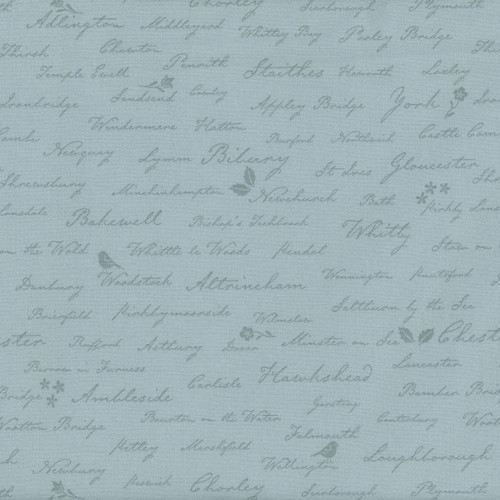 Chorley Scarborough Plymouth
Adlington Middleyard Whitley Bay Pateley Bridge
Thirsk Chawton
Penrith Staithes Haworth Loxley
Temple Ewell
Ironbridge Sandsend Appley Bridge York
Windermere Hatton Burford Northwich Castle
Newquay Lymm Bibury St Ives Gloucester
Shrewsbury Minchinhampton Newchurch Bath Kirkby
Bakewell Bishop's Whitby
on the Wold Whittle le Woods Kendal Stow on
Danbury Woodstock Altrincham Wennington Knutsford
Brierfield Kirkbymoorside Wilmslow Saltburn by the Sea
Pufford Astbury Dover Minster on Sea Chest
Barrow in Furness Carlisle Hawkshead Lancaster
Bridge Ambleside Bamber Bri
Wootton Bridge Bourton on the Water Canterbury
Hetley Marshfield Falmouth
Newbury Keswick Chorley Wellington Loughborough
Scarborough Plymouth